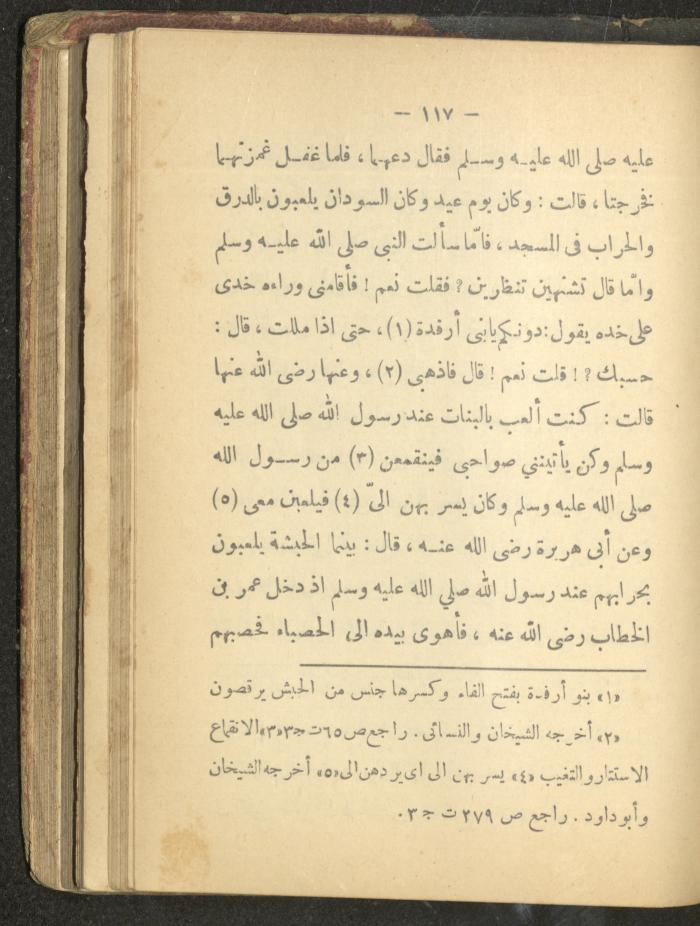 — ١١٧ —
عليه صلى الله عليه وسلم فقال دعهما ، فلما غفل غمزتهما
فخرجتا ، قالت : وكان يوم عيد وكان السودان يلعبون بالدرق
والحراب فى المسجد ، فامّا سألت النبى صلى الله عليه وسلم
وامّا قال تشتهين تنظارين ? فقلت نعم ! فأقامنى وراءه خدى
على خده يقول : دونكم يابنى أرفدة (١) ، حتى اذا مللت ، قال :
حسبك ? ! قلت نعم ! قال فاذهبى (٢) ، وعنها رضى الله عنها
قالت : كنت ألعب بالبنات عند رسول الله صلى الله عليه
وسلم وكن يأتيننى صواحبى فينقمعن (٣) من رسول الله
صلى الله عليه وسلم وكان يسر بهن الىّ (٤) فيلعبن معى (٥)
وعن أبى هريرة رضى الله عنه ، قال : بينما الحبشة يلعبون
بحرابهم عند رسول الله صلي الله عليه وسلم اذ دخل عمر بن
الخطاب رضى الله عنه ، فأهوى بيده الى الحصباء فحصبهم
«١» بنو أرفدة بفتح الفاء وكسرها جنس من الحبش يرقصون
«٢» أخرجه الشيخان والنسائى . راجع ص ٦٥ ت ج ٣ «٣» الانقماع
الاستتار والتغيب «٤» يسر بهن الى اى يردهن الى «٥» أخرجه الشيخان
وأبو داود . راجع ص ٢٧٩ ت ج ٣ .